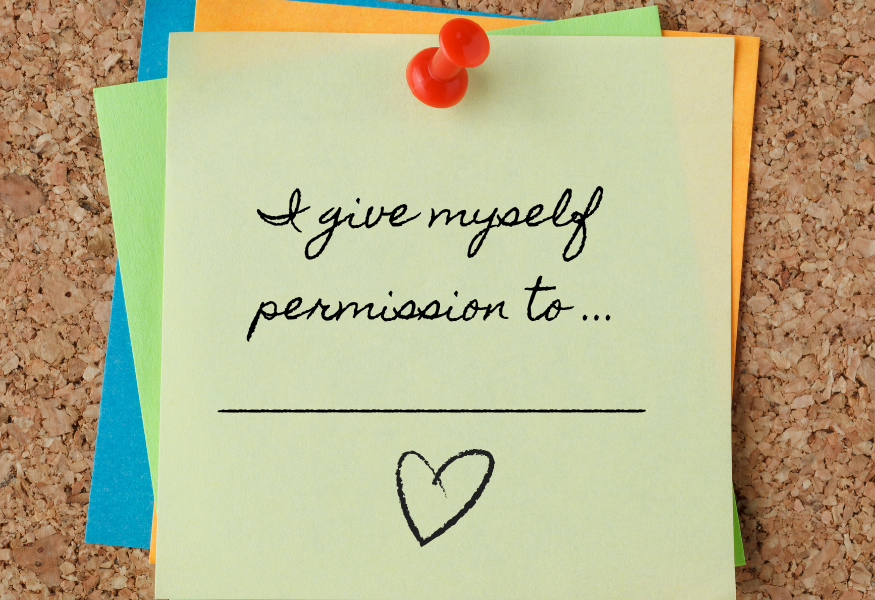 I give myself
permission to...